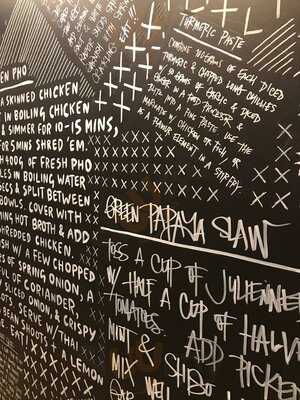 TURMERIC PASTE
COMBINE 200GRAMS OF EACH DICED
TURMERIC & CHOPPED LONG CHILLIES
OF GARLIC & DICED
IN A FOOD PROCESSOR &
INTO A FINE PASTE. USE THE
MARINADE W/ CHICKEN OR FISH, OR
AS A FLAVOUR ELEMENT IN A STIRFRY.
EN PHO
A SKINNED CHICKEN
T IN BOILING CHICKEN
& SIMMER FOR 10-15 MINS,
FOR 5 MINS SHRED 'EM.
A 400G OF FRESH PHO
LES IN BOILING WATER
SECS & SPLIT BETWEEN
BOWLS. COVER WITH
PING HOT BROTH & ADD
HREDDED CHICKEN.
SH W/ A FEW CHOPPED
S OF SPRING ONION, A
FUL OF CORIANDER,
DICED ONION, & CRISPY
OTS. SERVE W/ THAI
BEAN SHOOTS &
A LEMON
GREEN PAPAYA SLAW
TOSS A CUP OF JULIENNE
W/ HALF A CUP OF HALV
TOMATOES. ADD PICKE
MINT & SHISO
MIX WELL